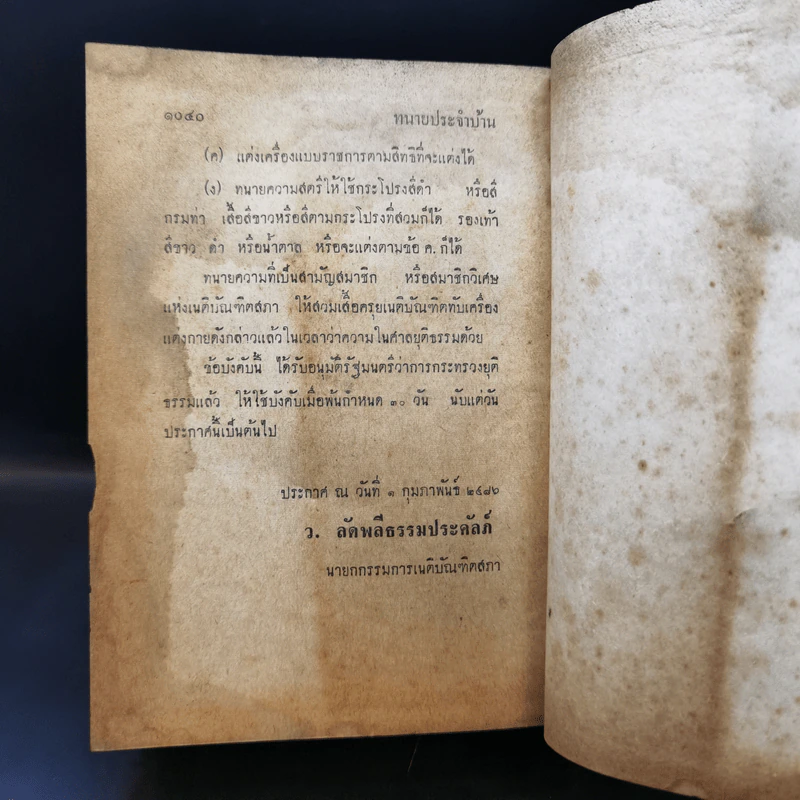 ๑๐๔๐ ทนายประจำบ้าน
(ค) แต่งเครื่องแบบราชการตามสิทธิที่จะแต่งได้
(ง) ทนายความสตรีให้ใช้กระโปรงสีดำ หรือสี
กรมท่า เสื้อสีขาวหรือสีตามกระโปรงที่สวมก็ได้ รองเท้า
สีขาว ดำ หรือน้ำตาล หรือจะแต่งตามข้อ ค. ก็ได้
ทนายความที่เป็นสามัญสมาชิก หรือสมาชิกวิเศษ
แห่งเนติบัณฑิตสภา ให้สวมเสื้อครุยเนติบัณฑิตทับเครื่อง
แต่งกายดังกล่าวแล้วในเวลาว่าความในศาลยุติธรรมด้วย
ข้อบังคับนี้ ได้รับอนุมัติรัฐมนตรีว่าการกระทรวงยุติ
ธรรมแล้ว ให้ใช้บังคับเมื่อพ้นกำหนด ๓๐ วัน นับแต่วัน
ประกาศนี้เป็นต้นไป
ประกาศ ณ วันที่ ๑ กุมภาพันธ์ ๒๔๘๖
ว. ลัดพลีธรรมประคัลภ์
นายกกรรมการเนติบัณฑิตสภา